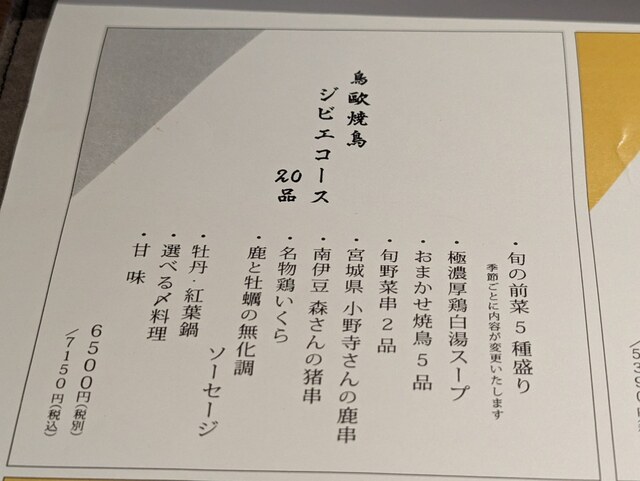 鳥歐焼鳥
ジビエコース
20品
・旬の前菜5種盛り
季節ごとに内容が変更いたします
・極濃厚鶏白湯スープ
・おまかせ焼鳥5品
・旬野菜串2品
・宮城県 小野寺さんの鹿串
・南伊豆 森さんの猪串
・名物鶏いくら
・鹿と牡蠣の無化調
ソーセージ
・牡丹・紅葉鍋
・選べる〆料理
・甘味
6500円(税別)
/7150円(税込)